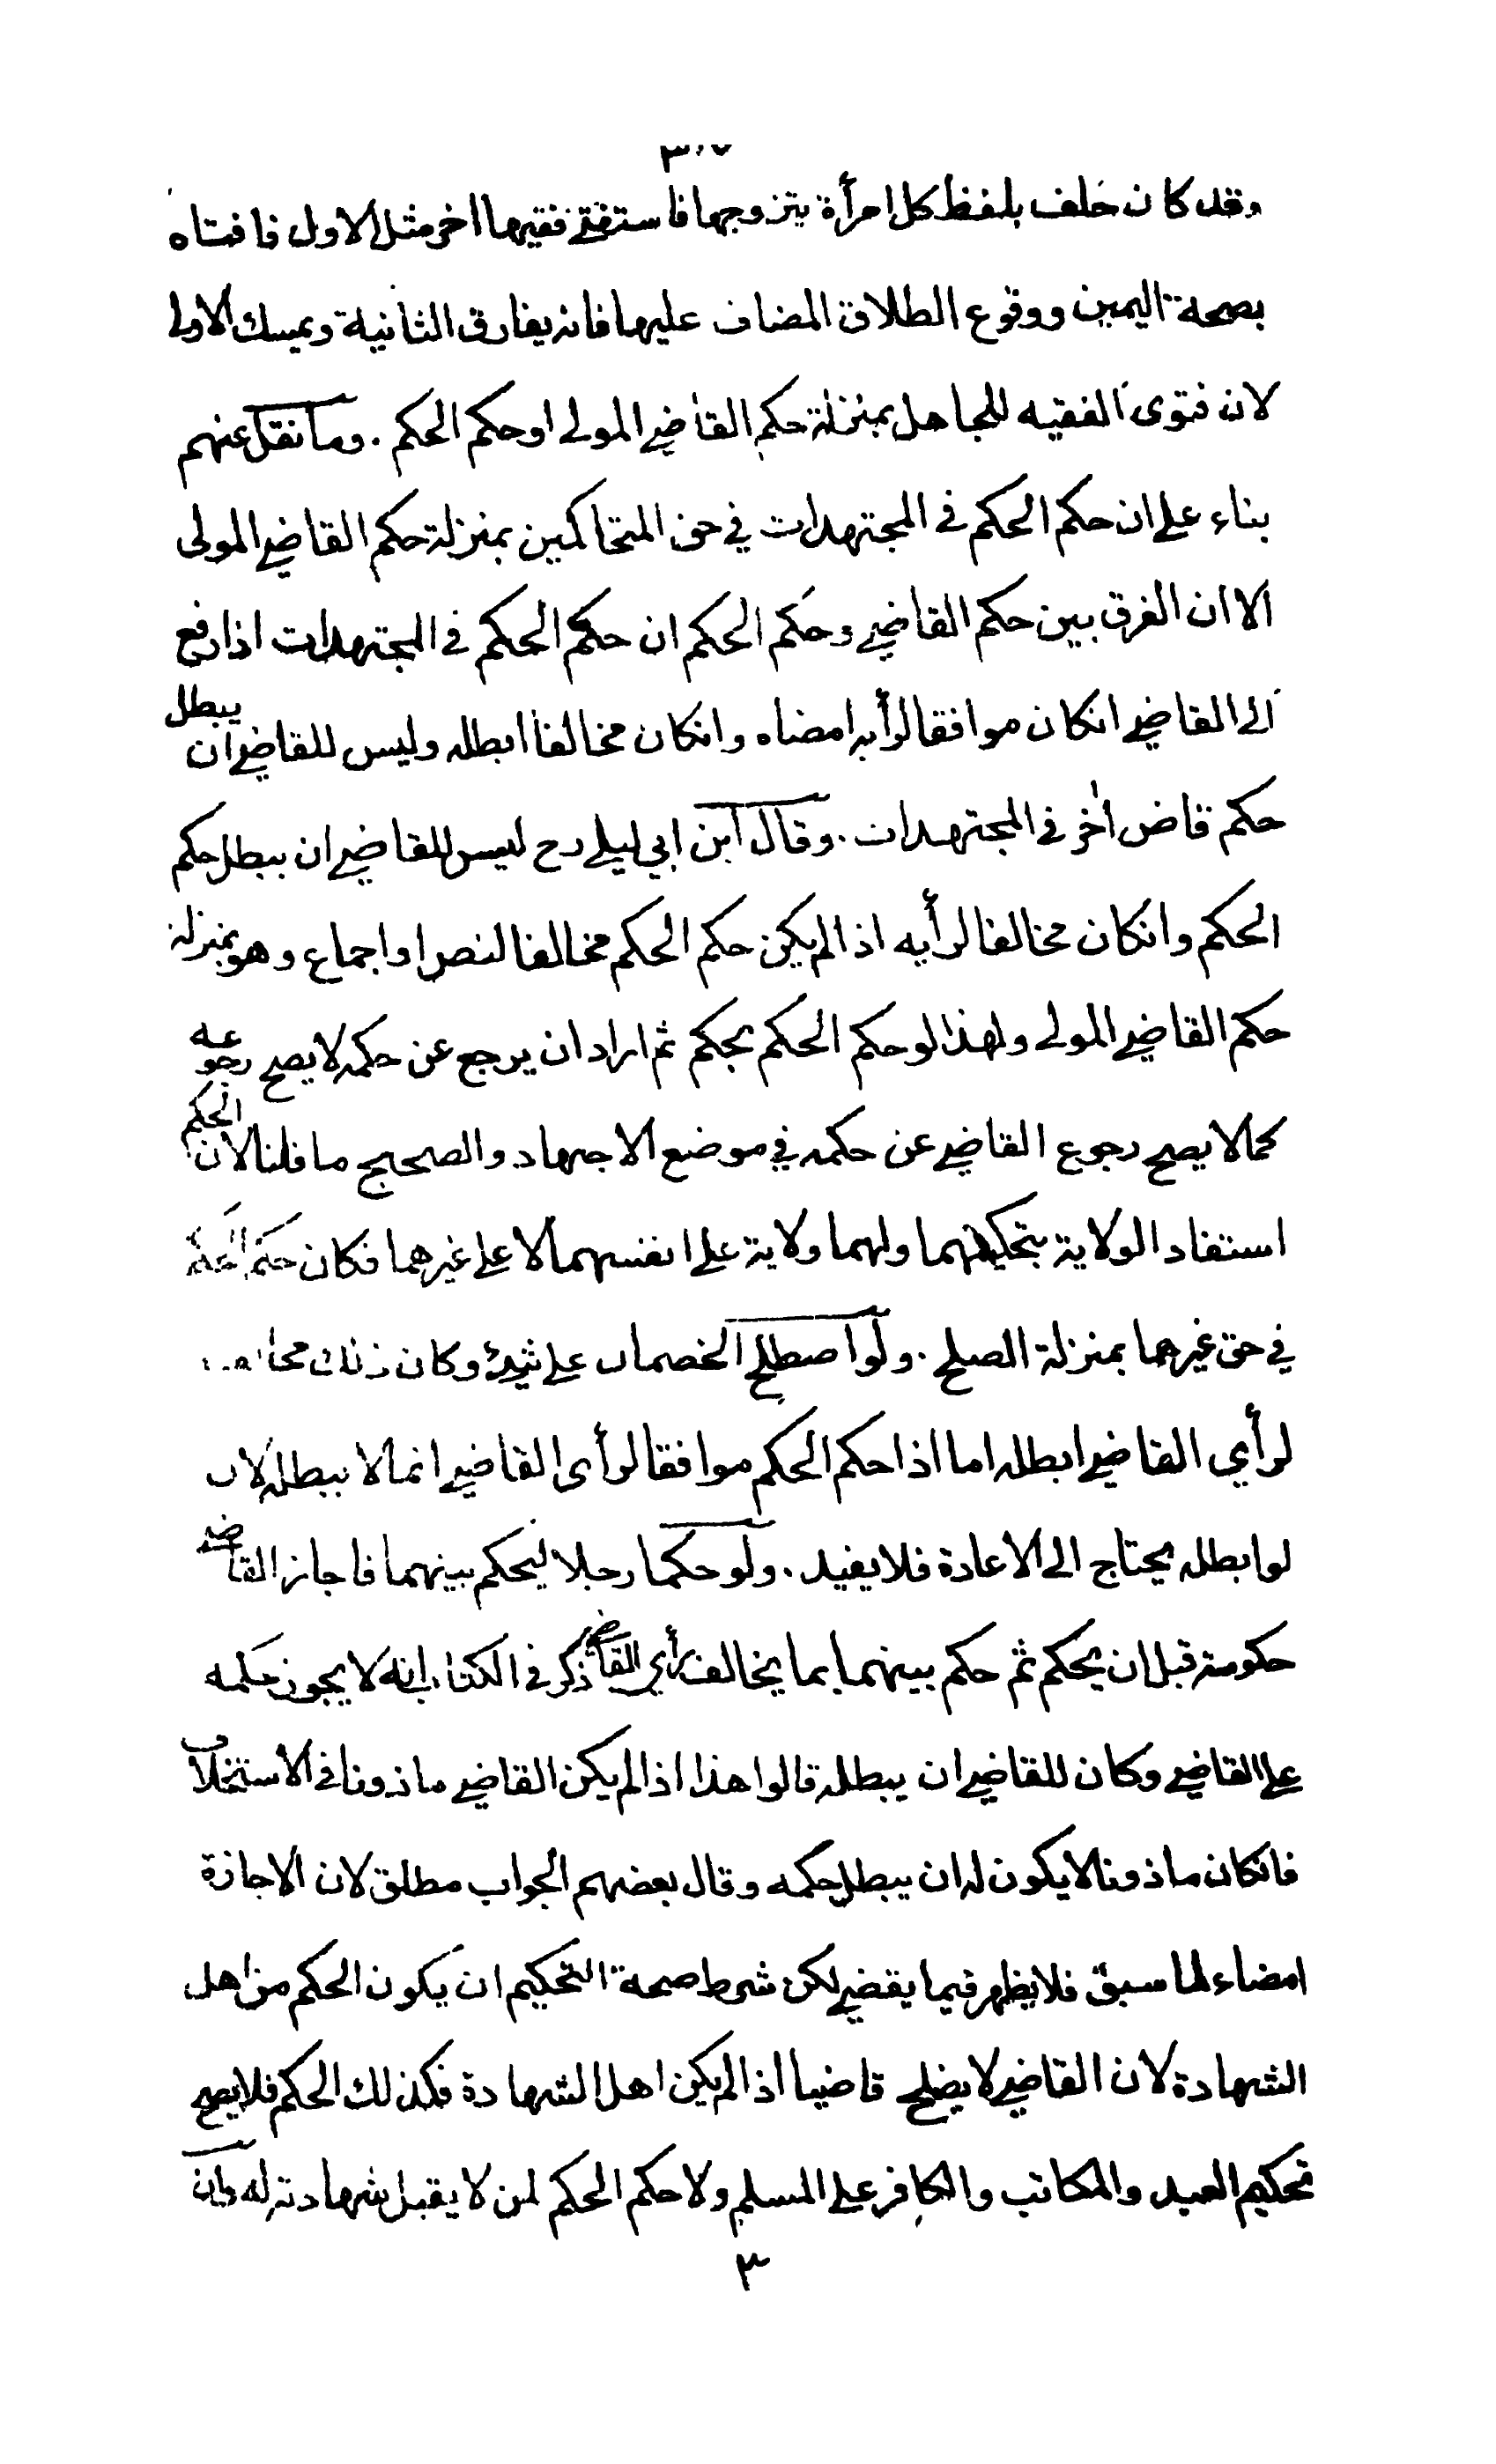 وقد كان حلف بلفظ كل امرأة يتزوجها فاستفتى فقيها اخر مثل الاول فافتاه
بصحة اليمين ووقوع الطلاق المضاف عليها فانه يفارق الثانية ويمسك الاولى
لان فتوى الفقيه للجاهل بمنزلة حكم القاضي المولى او حكم الحكم . وما نقل عنهم
بناء على ان حكم الحكم في المجتهدات في حق المتحاكمين بمنزلة حكم القاضي المولى
الا ان الفرق بين حكم القاضي وحكم الحكم ان حكم الحكم في المجتهدات اذا رفع
الى القاضي انكان موافقا لرأيه امضاه وانكان مخالفا ابطله وليس للقاضي ان يبطل
حكم قاض اخر في المجتهدات . وقال ابن ابي ليلى رح ليس للقاضي ان يبطل حكم
الحكم وانكان مخالفا لرأيه اذا لم يكن حكم الحكم مخالفا لنص او اجماع وهو بمنزلة
حكم القاضي المولى ولهذا لو حكم الحكم بحكم ثم اراد ان يرجع عن حكمه لا يصح رجوعه
كما لا يصح رجوع القاضي عن حكمه في موضع الاجتهاد والصحيح ما قلنا لان الحكم
استفاد الولاية بتحكيمهما ولهما ولاية على انفسهما لا على غيرهما فكان حكم
في حق غيرهما بمنزلة الصلح . ولو اصطلح الخصمان على شيئ وكان ذلك مخالفا
لرأي القاضي ابطله اما اذا حكم الحكم موافقا لرأى القاضي انما لا يبطله لان
لو ابطله يحتاج الى الاعادة فلا يفيد . ولو حكما رجلا ليحكم بينهما فاجاز القاضي
حكومته قبل ان يحكم ثم حكم بينهما بما يخالف رأي القاضي ذكر في الكتاب انه لا يجوز حكمه
على القاضي وكان للقاضي ان يبطله قالوا هذا اذا لم يكن القاضي ماذونا في الاستخلاف
فانكان ماذونا لا يكون له ان يبطل حكمه وقال بعضهم الجواب مطلق لان الاجازة
امضاء لما سبق فلا يظهر فيما يقضي لكن شرط صحة التحكيم ان يكون الحكم من اهل
الشهادة لان القاضي لا يصلح قاضيا اذا لم يكن اهل الشهادة فكذلك الحكم فلا يصح
تحكيم العبد والمكاتب والكافر على المسلم ولا حكم الحكم لمن لا يقبل شهادته له وان
٣